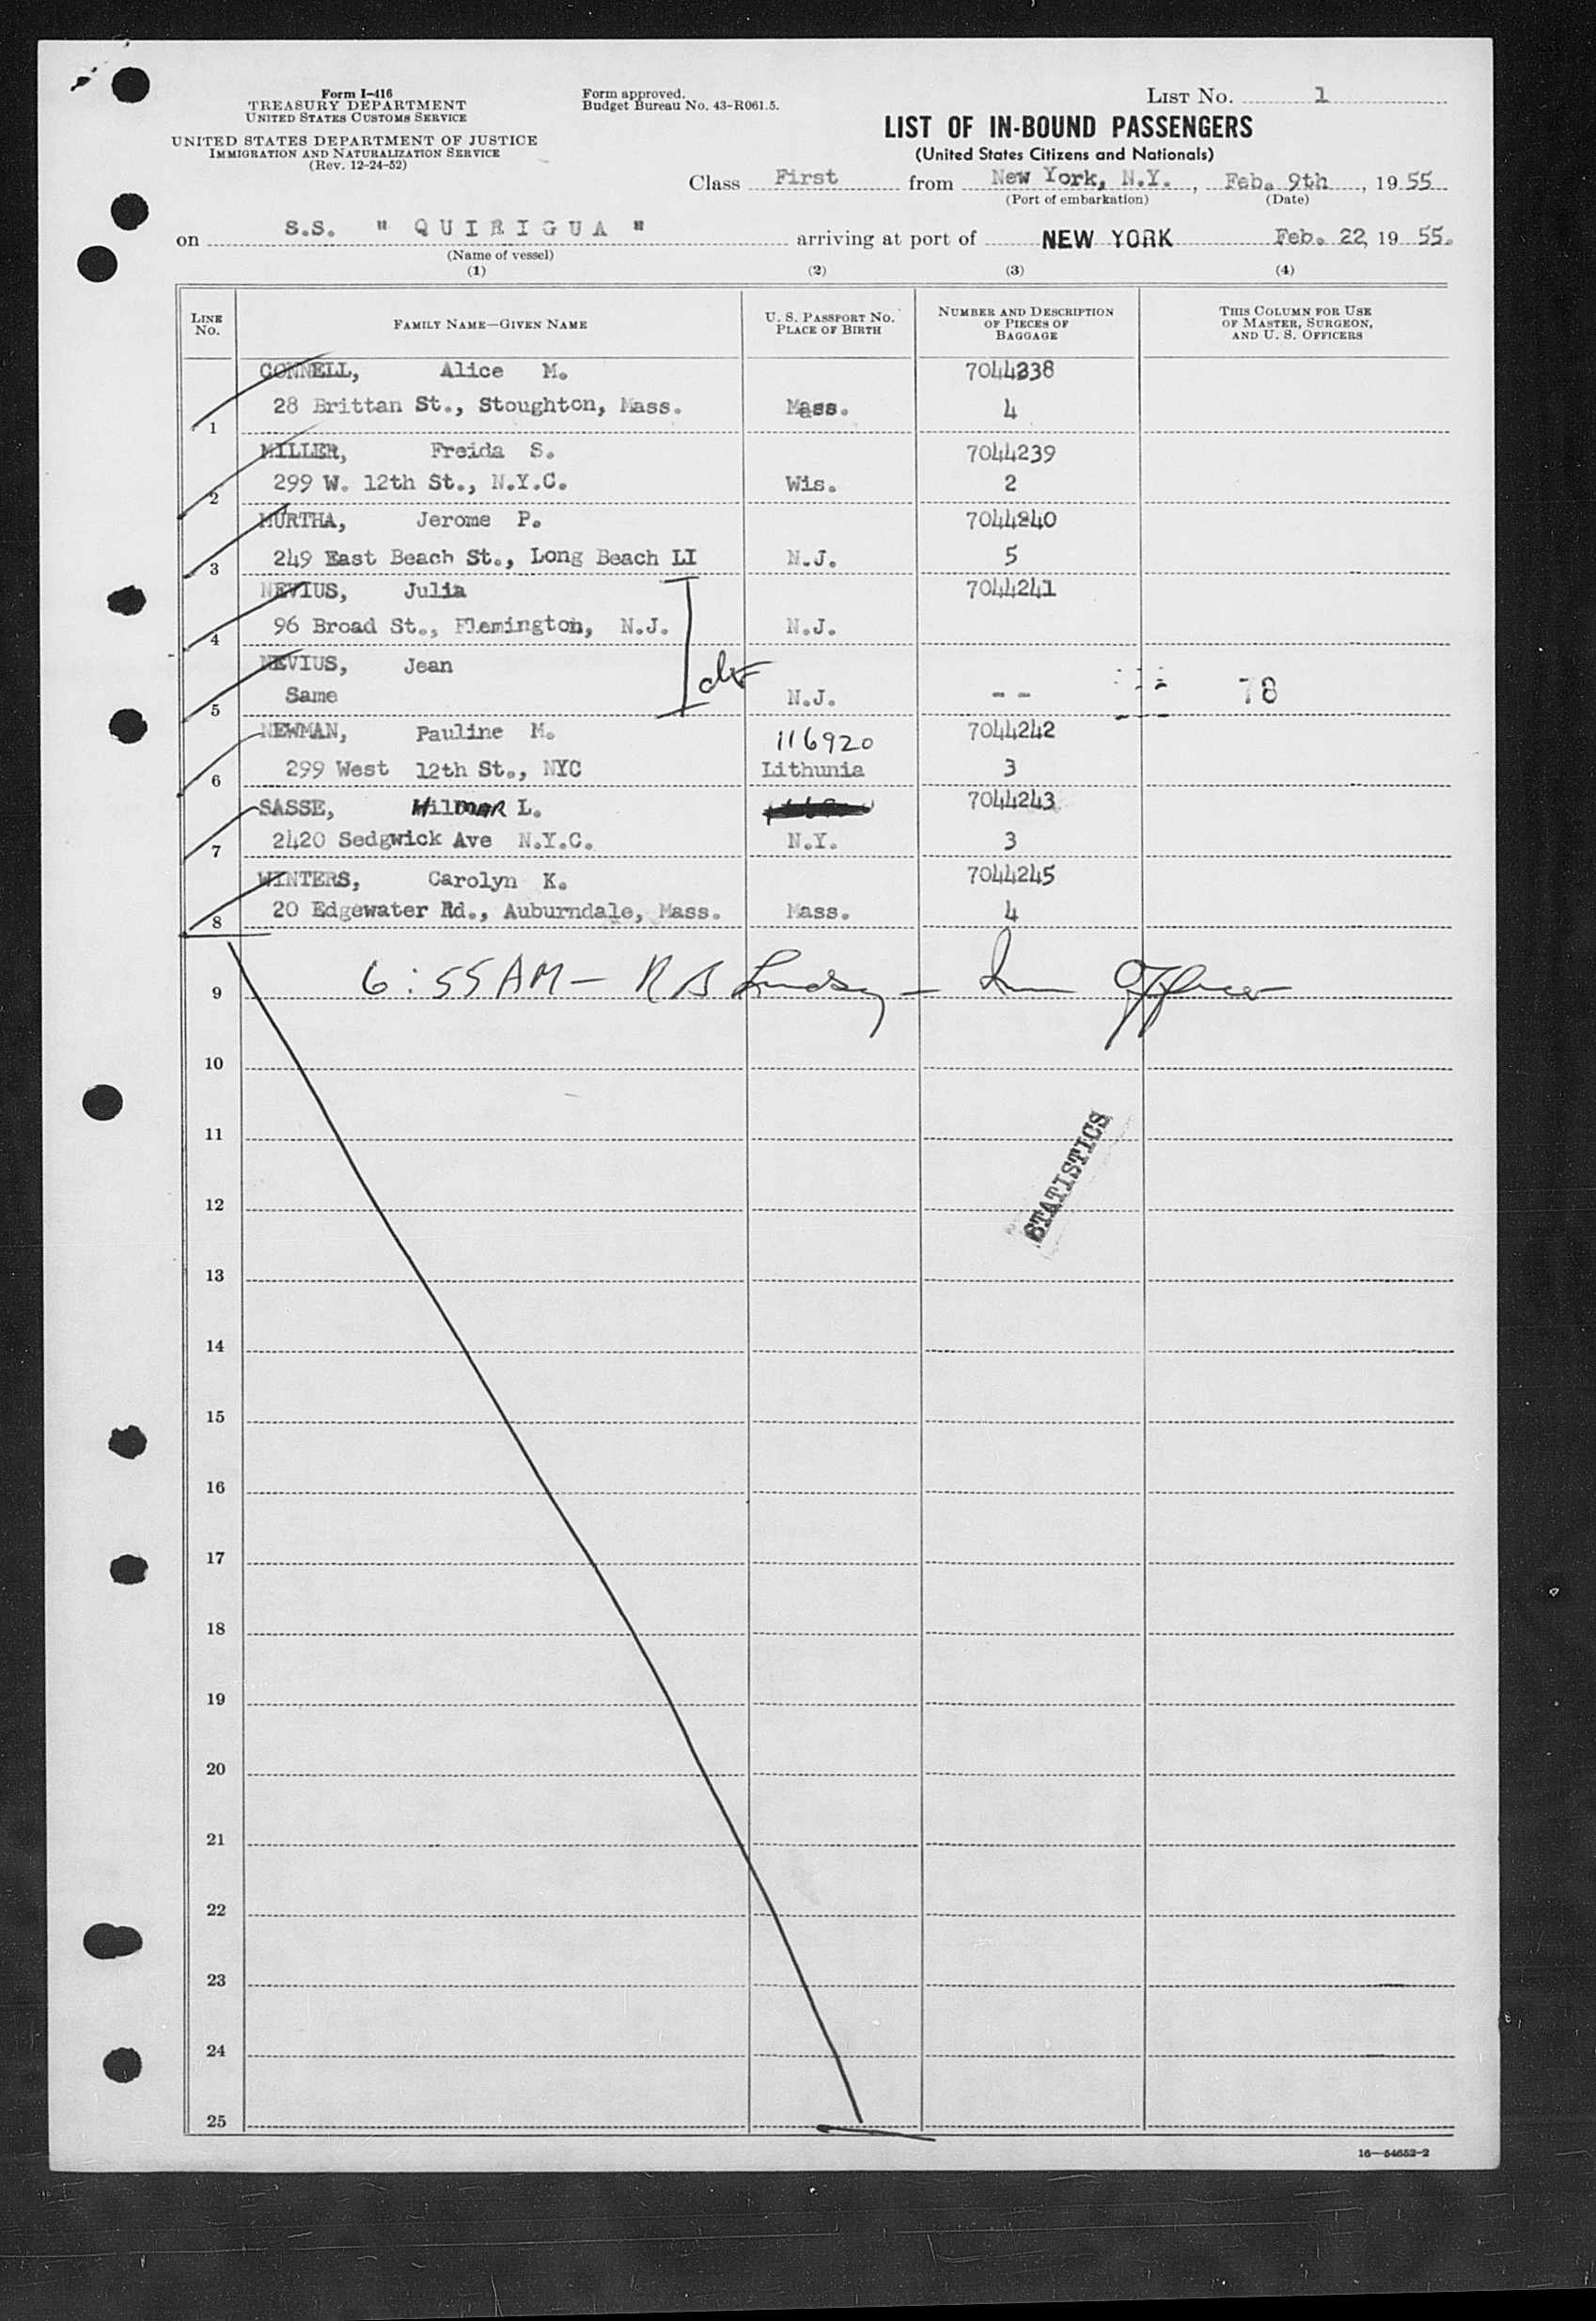 Form I-416
TREASURY DEPARTMENT
UNITED STATES CUSTOMS SERVICE
UNITED STATES DEPARTMENT OF JUSTICE
IMMIGRATION AND NATURALIZATION SERVICE
(Rev. 12-24-52)
Form approved.
Budget Bureau No. 43-R061.5.
LIST NO. 1
LIST OF IN-BOUND PASSENGERS
(United States Citizens and Nationals)
Class First from New York, N.Y., Feb. 9th, 1955
(Port of embarkation) (Date)
on S.S. " QUIRIGUA " arriving at port of NEW YORK Feb. 22, 19 55.
(Name of vessel)
(1) (2) (3) (4)
LINE NO. FAMILY NAME—GIVEN NAME U. S. PASSPORT NO. PLACE OF BIRTH NUMBER AND DESCRIPTION OF PIECES OF BAGGAGE THIS COLUMN FOR USE OF MASTER, SURGEON, AND U. S. OFFICERS
CONNELL, Alice M. 7044238
1 28 Brittan St., Stoughton, Mass. Mass. 4
MILLER, Freida S. 7044239
2 299 W. 12th St., N.Y.C. Wis. 2
MURTHA, Jerome P. 7044240
3 249 East Beach St., Long Beach LI N.J. 5
NEVIUS, Julia 7044241
4 96 Broad St., Flemington, N.J. N.J.
NEVIUS, Jean
5 Same N.J. -- 78
NEWMAN, Pauline M. 116920 7044242
6 299 West 12th St., NYC Lithunia 3
SASSE, HilMAR L. 7044243
7 2420 Sedgwick Ave N.Y.C. N.Y. 3
WINTERS, Carolyn K. 7044245
8 20 Edgewater Rd., Auburndale, Mass. Mass. 4
9 6:55 AM — R B Lindsay — Imm Officer
10
11
STATISTICS
12
13
14
15
16
17
18
19
20
21
22
23
24
25
16—54652-2